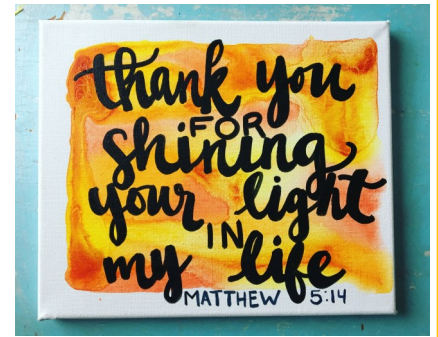 thank you
FOR
shining
your light
IN
my life
MATTHEW 5:14